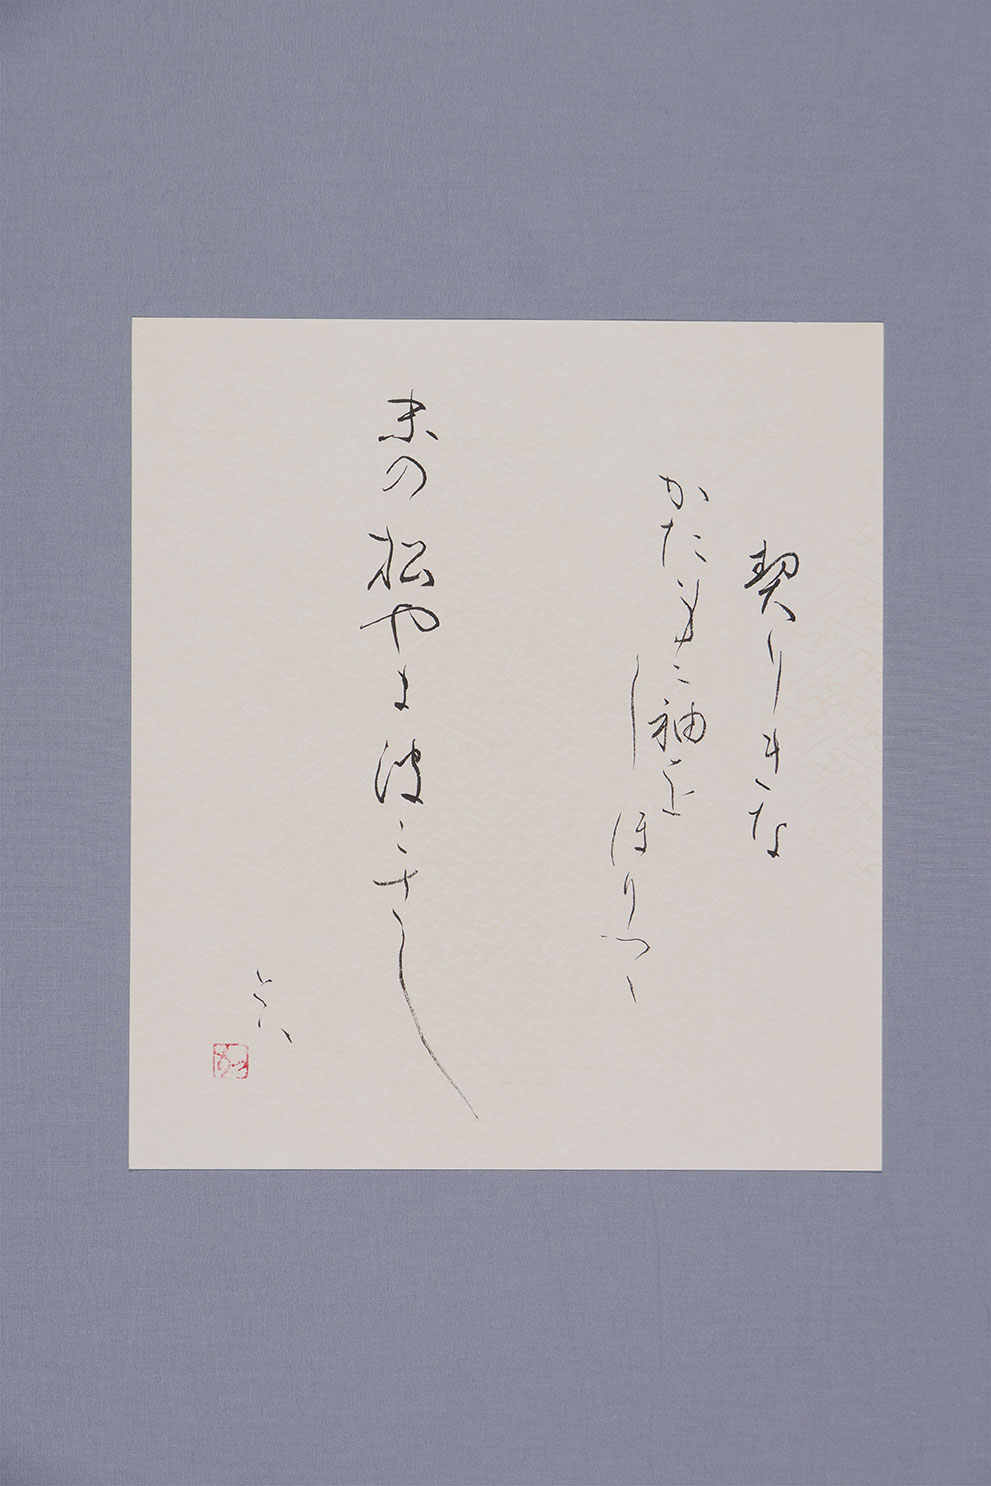 契りきな
かたみに袖を
しほりつゝ
末の松やま波こさし
とは